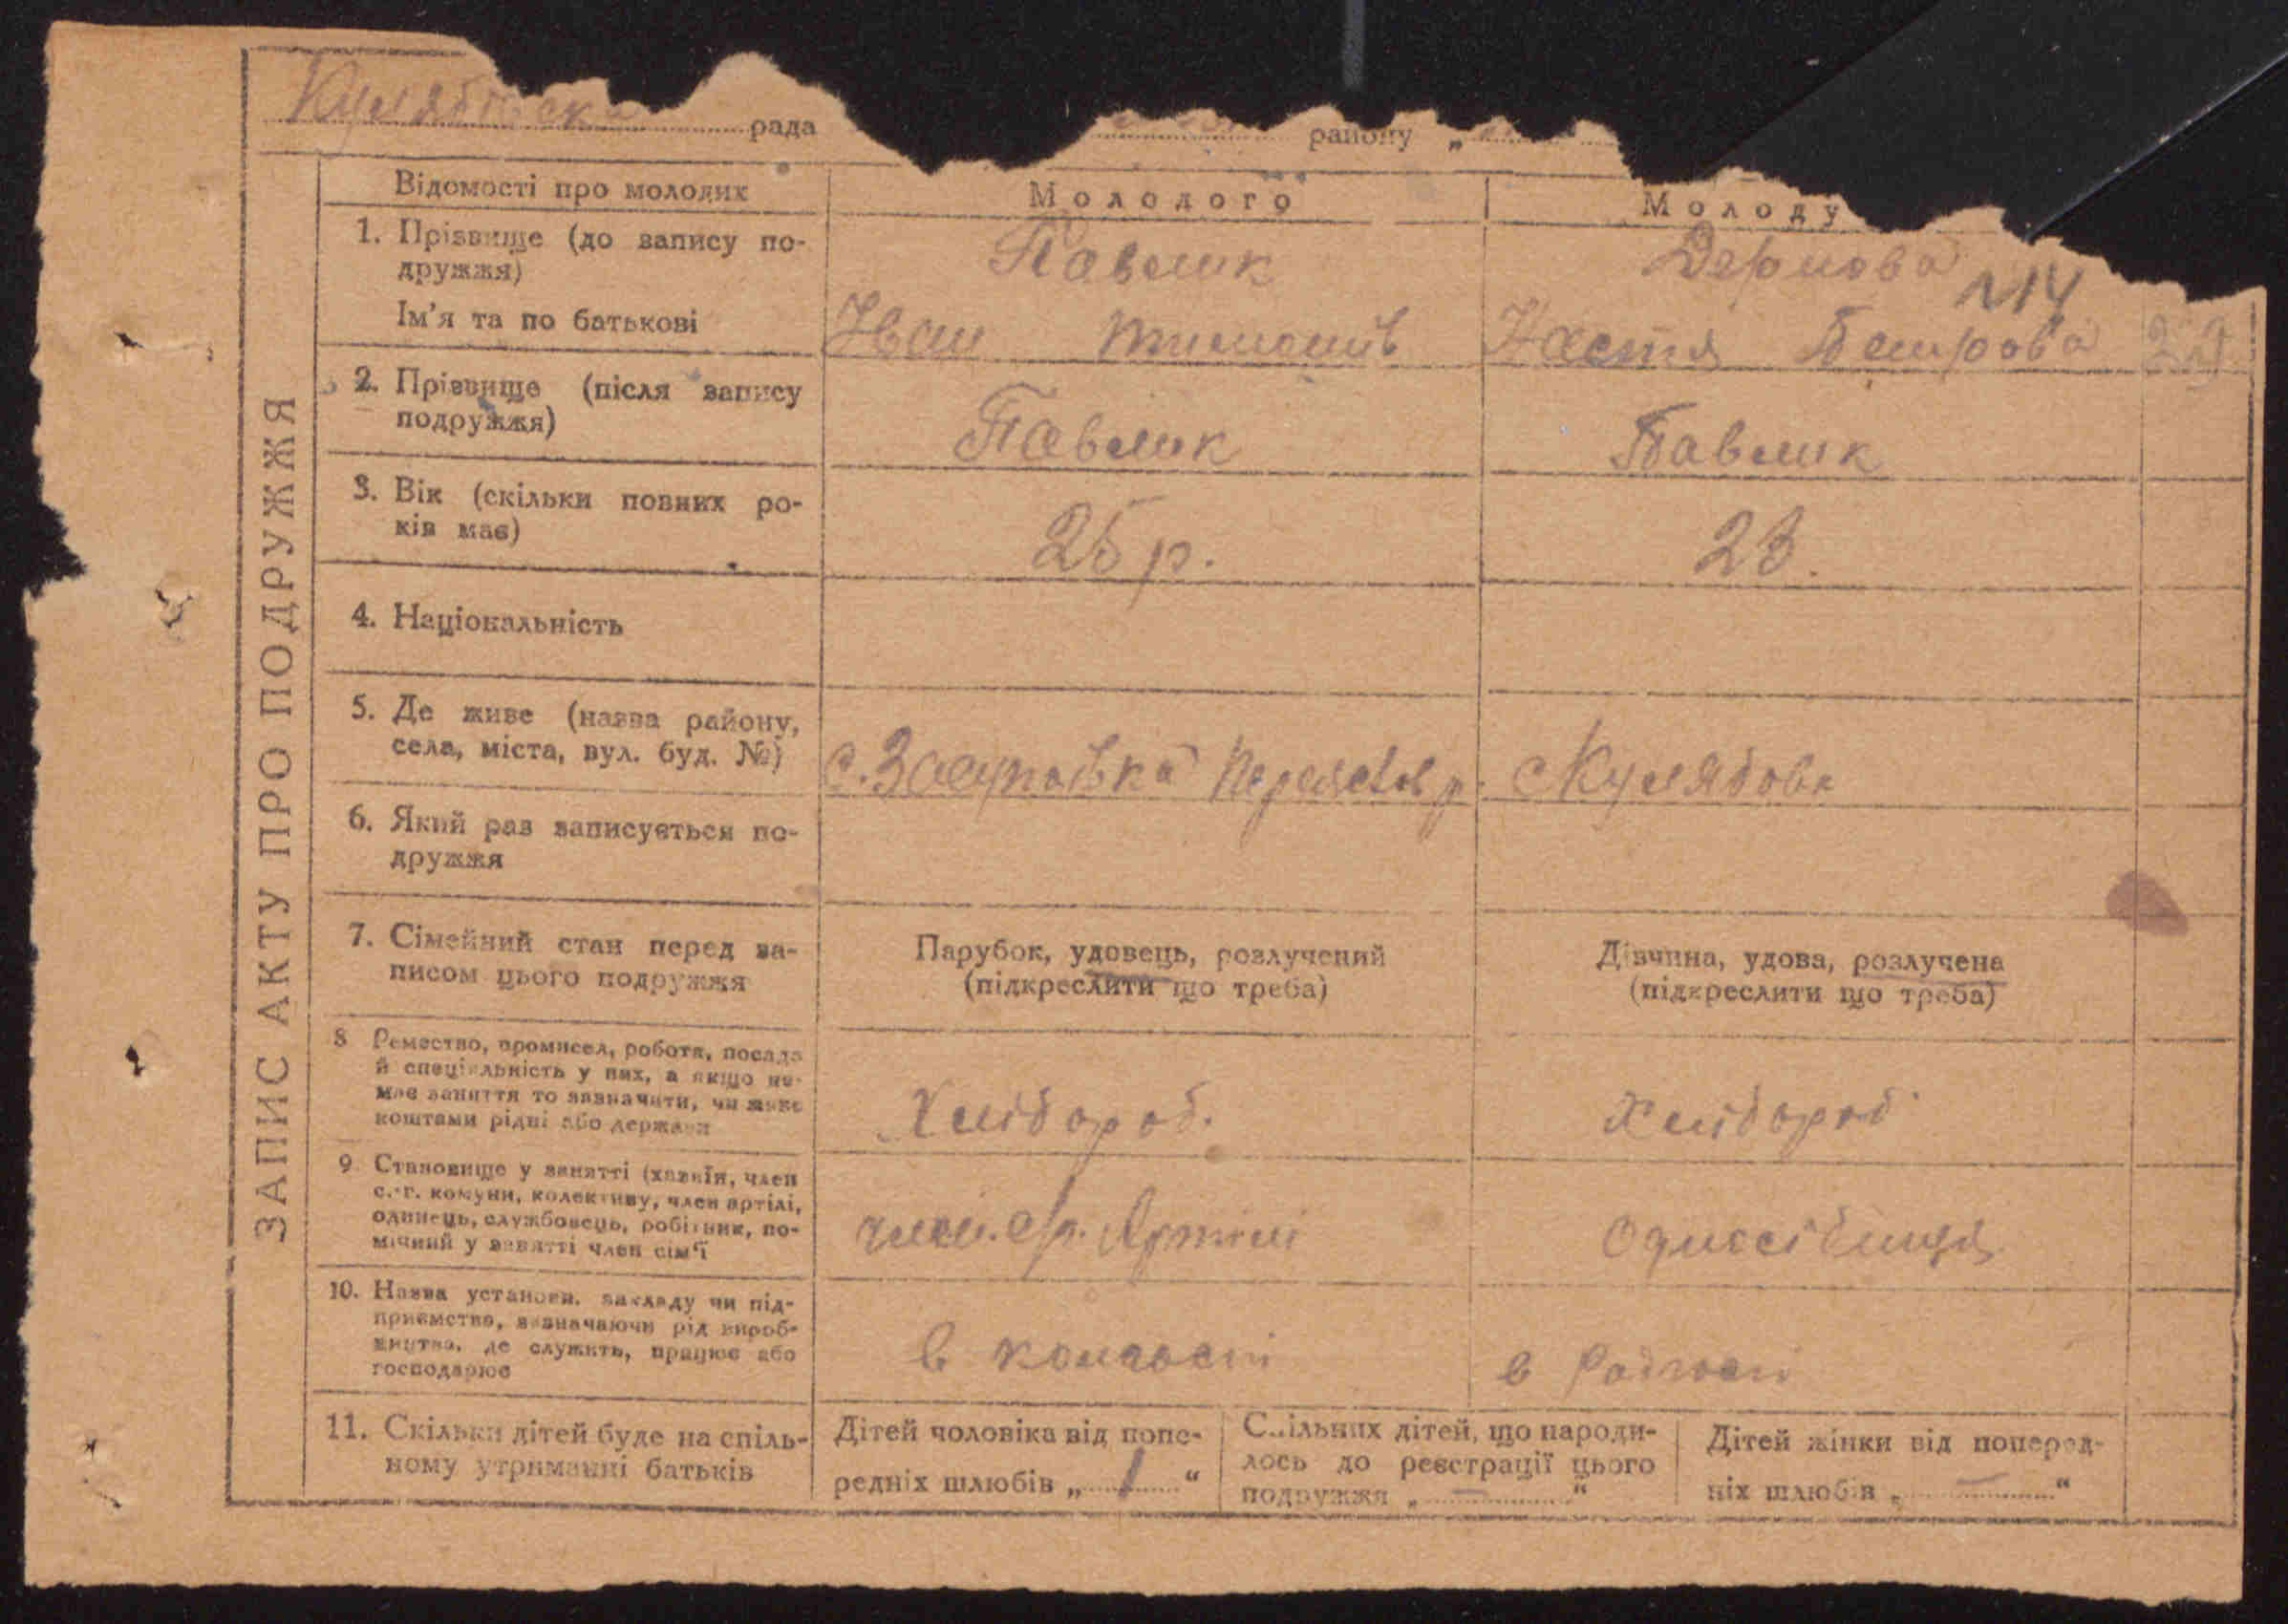 Кулябінска рада району „
ЗАПИС АКТУ ПРО ПОДРУЖЖЯ
Відомості про молодих
Молодого
Молоду
1. Прізвище (до запису по-
дружжя)
Павлик
Дернова
№14
Ім'я та по батькові
Іван Тимошів
Настя Петрова
2. Прізвище (після запису
подружжя)
Павлик
Павлик
3. Вік (скільки повних ро-
ків має)
25 р.
23.
4. Національність
5. Де живе (назва району,
села, міста, вул. буд. №)
с. Засупоївка
с Кулябовка
6. Який раз записується по-
дружжя
7. Сімейний стан перед за-
писом цього подружжя
Парубок, удовець, розлучений
(підкреслити що треба)
Дівчина, удова, розлучена
(підкреслити що треба)
8 Ремество, промисел, робота, посада
й спеціяльність у них, а якщо не-
має заняття то зазначити, чи живе
коштами рідні або держави
Хлібороб.
Хлібороб
9 Становище у занятті (хазяїн, член
с.-г. комуни, колективу, член артілі,
одинець, службовець, робітник, по-
мічний у занятті член сім'ї
член. Артілі
Одноосібниця
10. Назва установи, закладу чи під-
приємства, зазначаючи рід вироб-
ництва, де служить, працює або
господарює
в колгоспі
в Радгоспі
11. Скільки дітей буде на спіль-
ному утриманні батьків
Дітей чоловіка від попе-
редніх шлюбів „ 1 “
Спільних дітей, що народи-
лось до реєстрації цього
подружжя „ — “
Дітей жінки від поперед-
ніх шлюбів „ — “